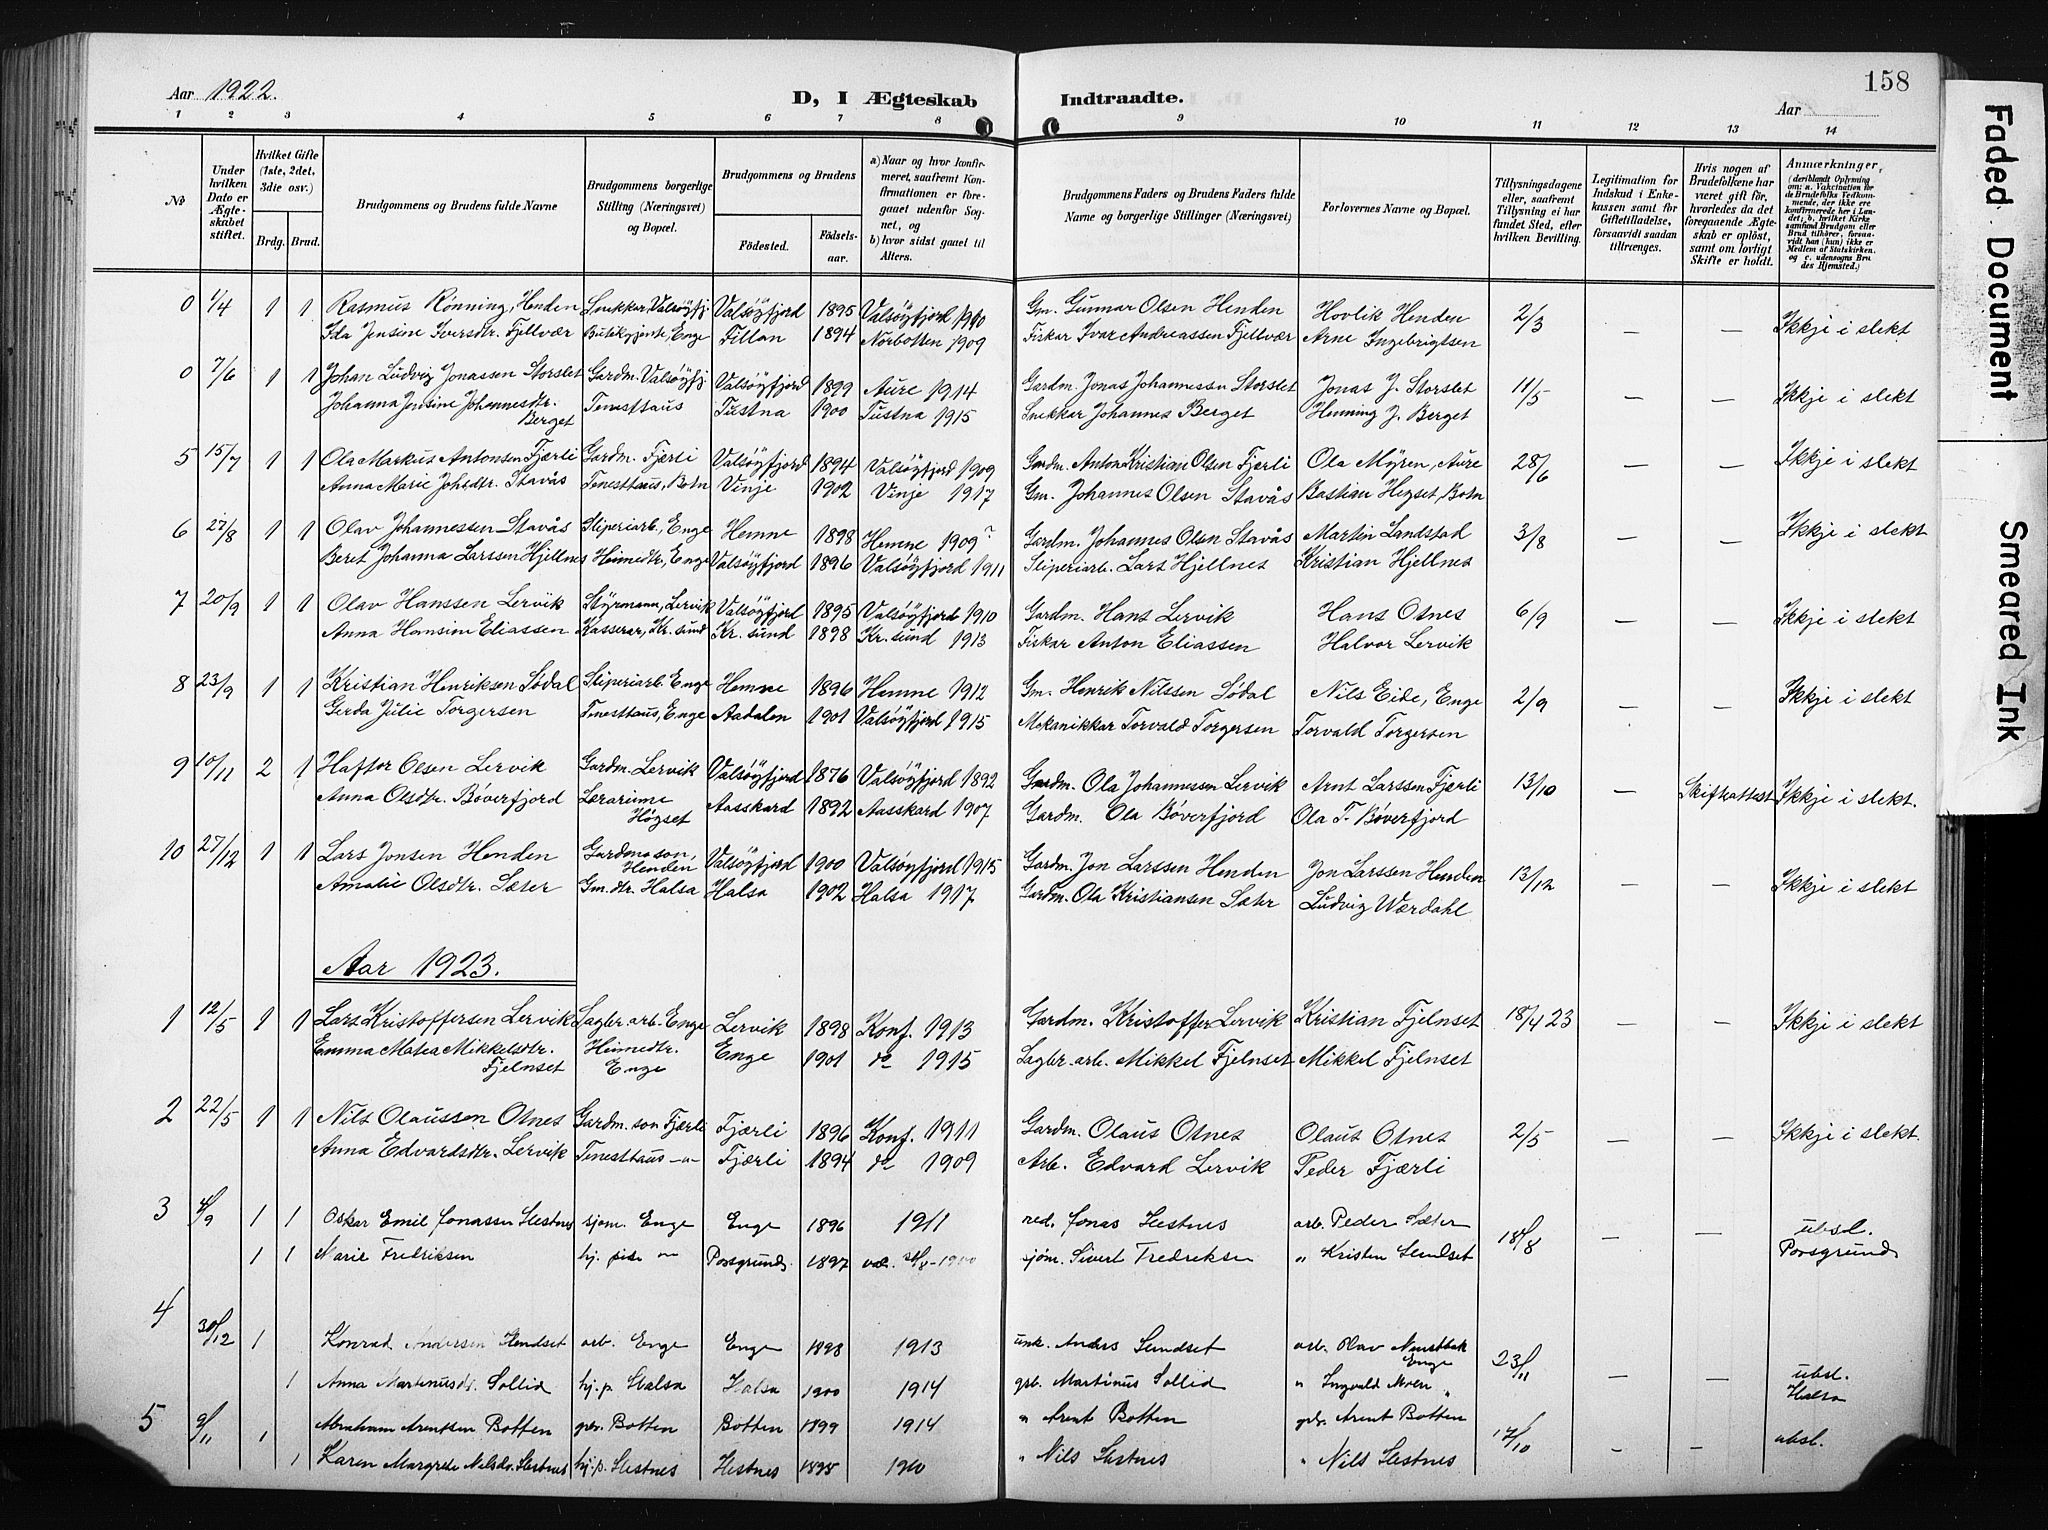 158
Aar 1922.
D, I Ægteskab Indtraadte.
Aar
1 2 3 4 5 6 7 8 9 10 11 12 13 14
No
Under hvilken Dato er Ægteskabet stiftet.
Hvilket Gifte (1ste, 2det, 3die osv.)
Brdg. Brud.
Brudgommens og Brudens fulde Navne
Brudgommens borgerlige Stilling (Næringsvei) og Bopæl.
Brudgommens og Brudens
Födested. Födselsaar.
a) Naar og hvor konfirmeret, saafremt Konfirmationen er foregaaet udenfor Sognet, og
b) hvor sidst gaaet til Alters.
Brudgommens Faders og Brudens Faders fulde Navne og borgerlige Stillinger (Næringsvei)
Forlovernes Navne og Bopæl.
Tillysningsdagene eller, saafremt Tillysning ei har fundet Sted, efter hvilken Bevilling.
Legitimation for Indskud i Enkekassen samt for Giftetilladelse, forsaavidt saadan tiltrænges.
Hvis nogen af Brudefolkene har været gift för, hvorledes da det foregaaende Ægteskab er oplöst, samt om lovligt Skifte er holdt.
Anmærkninger, (deriblandt Oplysning om: a. Vakcination for de Brudefolks Vedkommende, der ikke ere konfirmerede her i Landet; b. hvilket Kirkesamfund Brudgom eller Brud tilhörer, forsaavidt han (hun) ikke er Medlem af Statskirken, og c. udensogns Brudes Hjemsted.)
0 1/4 1 1 Rasmus Rønning, Henden Snekkar, Valsøyfj. Valsøyfjord 1895 Valsøyfjord 1910 Gm. Gunnar Olsen Henden Hovlik Henden 2/3 – – Ikkje i slekt
Ida Jensine Iversdtr. Fjellvær Butikgjente, Enge Fillan 1894 Norbotten 1909 Fiskar Ivar Andreassen Fjellvær Arne Ingebrigtsen
0 7/6 1 1 Johan Ludvig Jonassen Storslet Gardm. Valsøyfj. Valsøyfjord 1899 Aure 1914 Gardm. Jonas Johannessen Storslet Jonas J. Storslet 11/5 – – Ikkje i slekt
Johanna Jensine Johannesdtr. Tenesttaus Tustna 1900 Tustna 1915 Snekkar Johannes Berget Henning J. Berget
Berget
5 15/7 1 1 Ola Markus Antonsen Fjærli Gardm. Fjærli Valsøyfjord 1894 Valsøyfjord 1909 Gardm. Anton Kristian Olsen Fjærli Ola Myren, Aure 28/6 – – Ikkje i slekt
Anna Marie Johsdtr. Stavås Tenesttaus, Botn Vinje 1902 Vinje 1917 Gm. Johannes Olsen Stavås Bastian Hegset, Botn
6 27/8 1 1 Olav Johannessen Stavås Sliperiarb., Enge Hemne 1898 Hemne 1909? Gardm. Johannes Olsen Stavås Martin Landstad 3/8 – – Ikkje i slekt
Beret Johanna Larssen Hjellnes Heimedtr, Enge Valsøyfjord 1896 Valsøyfjord 1911 Sliperiarb. Lars Hjellnes Kristian Hjellnes
7 20/9 1 1 Olav Hanssen Lervik Styrmann, Lervik Valsøyfjord 1895 Valsøyfjord 1910 Gardm. Hans Lervik Hans Otnes 6/9 – – Ikkje i slekt
Anna Hansine Eliassen Kasserar, Kr. sund Kr. sund 1898 Kr. sund 1913 Fiskar Anton Eliassen Halvor Lervik
8 23/9 1 1 Kristian Henriksen Sødal Sliperiarb. Enge Hemne 1896 Hemne 1912 Gm. Henrik Nilssen Sødal Nils Eide, Enge 2/9 – – Ikkje i slekt
Gerda Julie Torgersen Tenesttaus, Enge Aadalen 1901 Valsøyfjord 1915 Mekanikkar Torvald Torgersen Torvald Torgersen
9 10/11 2 1 Haftor Olsen Lervik Gardm. Lervik Valsøyfjord 1876 Valsøyfjord 1892 Gardm. Ola Johannessen Lervik Arnt Larssen Fjærli 13/10 – Skifteattest Ikkje i slekt.
Anna Olsdtr. Bøverfjord Lærarinne Høgset Aasskard 1892 Aasskard 1907 Gardm. Ola Bøverfjord Ola T. Bøverfjord
10 27/12 1 1 Lars Jonsen Henden Gardmanson, Henden Valsøyfjord 1900 Valsøyfjord 1915 Gardm. Jon Larssen Henden Jon Larssen Henden 13/12 – – Ikkje i slekt
Amalie Olsdtr. Sæter Gm. dtr. Halsa Halsa 1902 Halsa 1917 Gardm. Ola Kristiansen Sæter Ludvig Wærdahl
Aar 1923.
1 12/5 1 1 Lars Kristoffersen Lervik Sagbr. arb. Enge Lervik 1898 Konf. 1913 Gardm. Kristoffer Lervik Kristian Fjelnset 18/4 23 – – Ikkje i slekt
Emma Matea Mikkelsdtr. Heimedtr. Enge 1901 do 1915 Sagbr. arb. Mikkel Fjelnset Mikkel Fjelnset
Fjelnset Enge
2 22/5 1 1 Nils Olaussen Otnes Gardm. son Fjærli Fjærli 1896 Konf. 1911 Gardm. Olaus Otnes Olaus Otnes 2/5 – – Ikkje i slekt.
Anna Edvardsdtr. Lervik Tenesttaus –"– Fjærli 1894 do 1909 Arb. Edvard Lervik Peder Fjærli
3 4/9 1 1 Oskar Emil Jonassen Hestnes sjøm. Enge Enge 1896 1911 Jonas Hestnes arb. Peder Sæter 18/8 – – ubsl.
1 1 Marie Fredriksen hj. pike –"– Porsgrund. 1897 sjöm. Sivert Fredriksen " Kristen Sundset Porsgrund
4 30/12 1 Konrad Andersen Sundset arb. Enge Enge 1898 1913 Anders Sundset arb. Olav 23/11 – – ubsl.
Enge
1 Anna Martinusd. Sollid hj. p. Halsa Halsa 1900 1914 gb. Martinus Sollid " Ingvald Moen " Halsa
5 9/11 1 Abraham Arentsen Botten gbr. Botten Botten 1899 1914 " Arent Botten gbr. Arent Botten 17/10 – – ubsl.
1 Karen Margrete Nilsdr. Hestnes hj. p. Hestnes Hestnes 1895 1910 " Nils Hestnes " Nils Hestnes
Faded Document
Smeared Ink